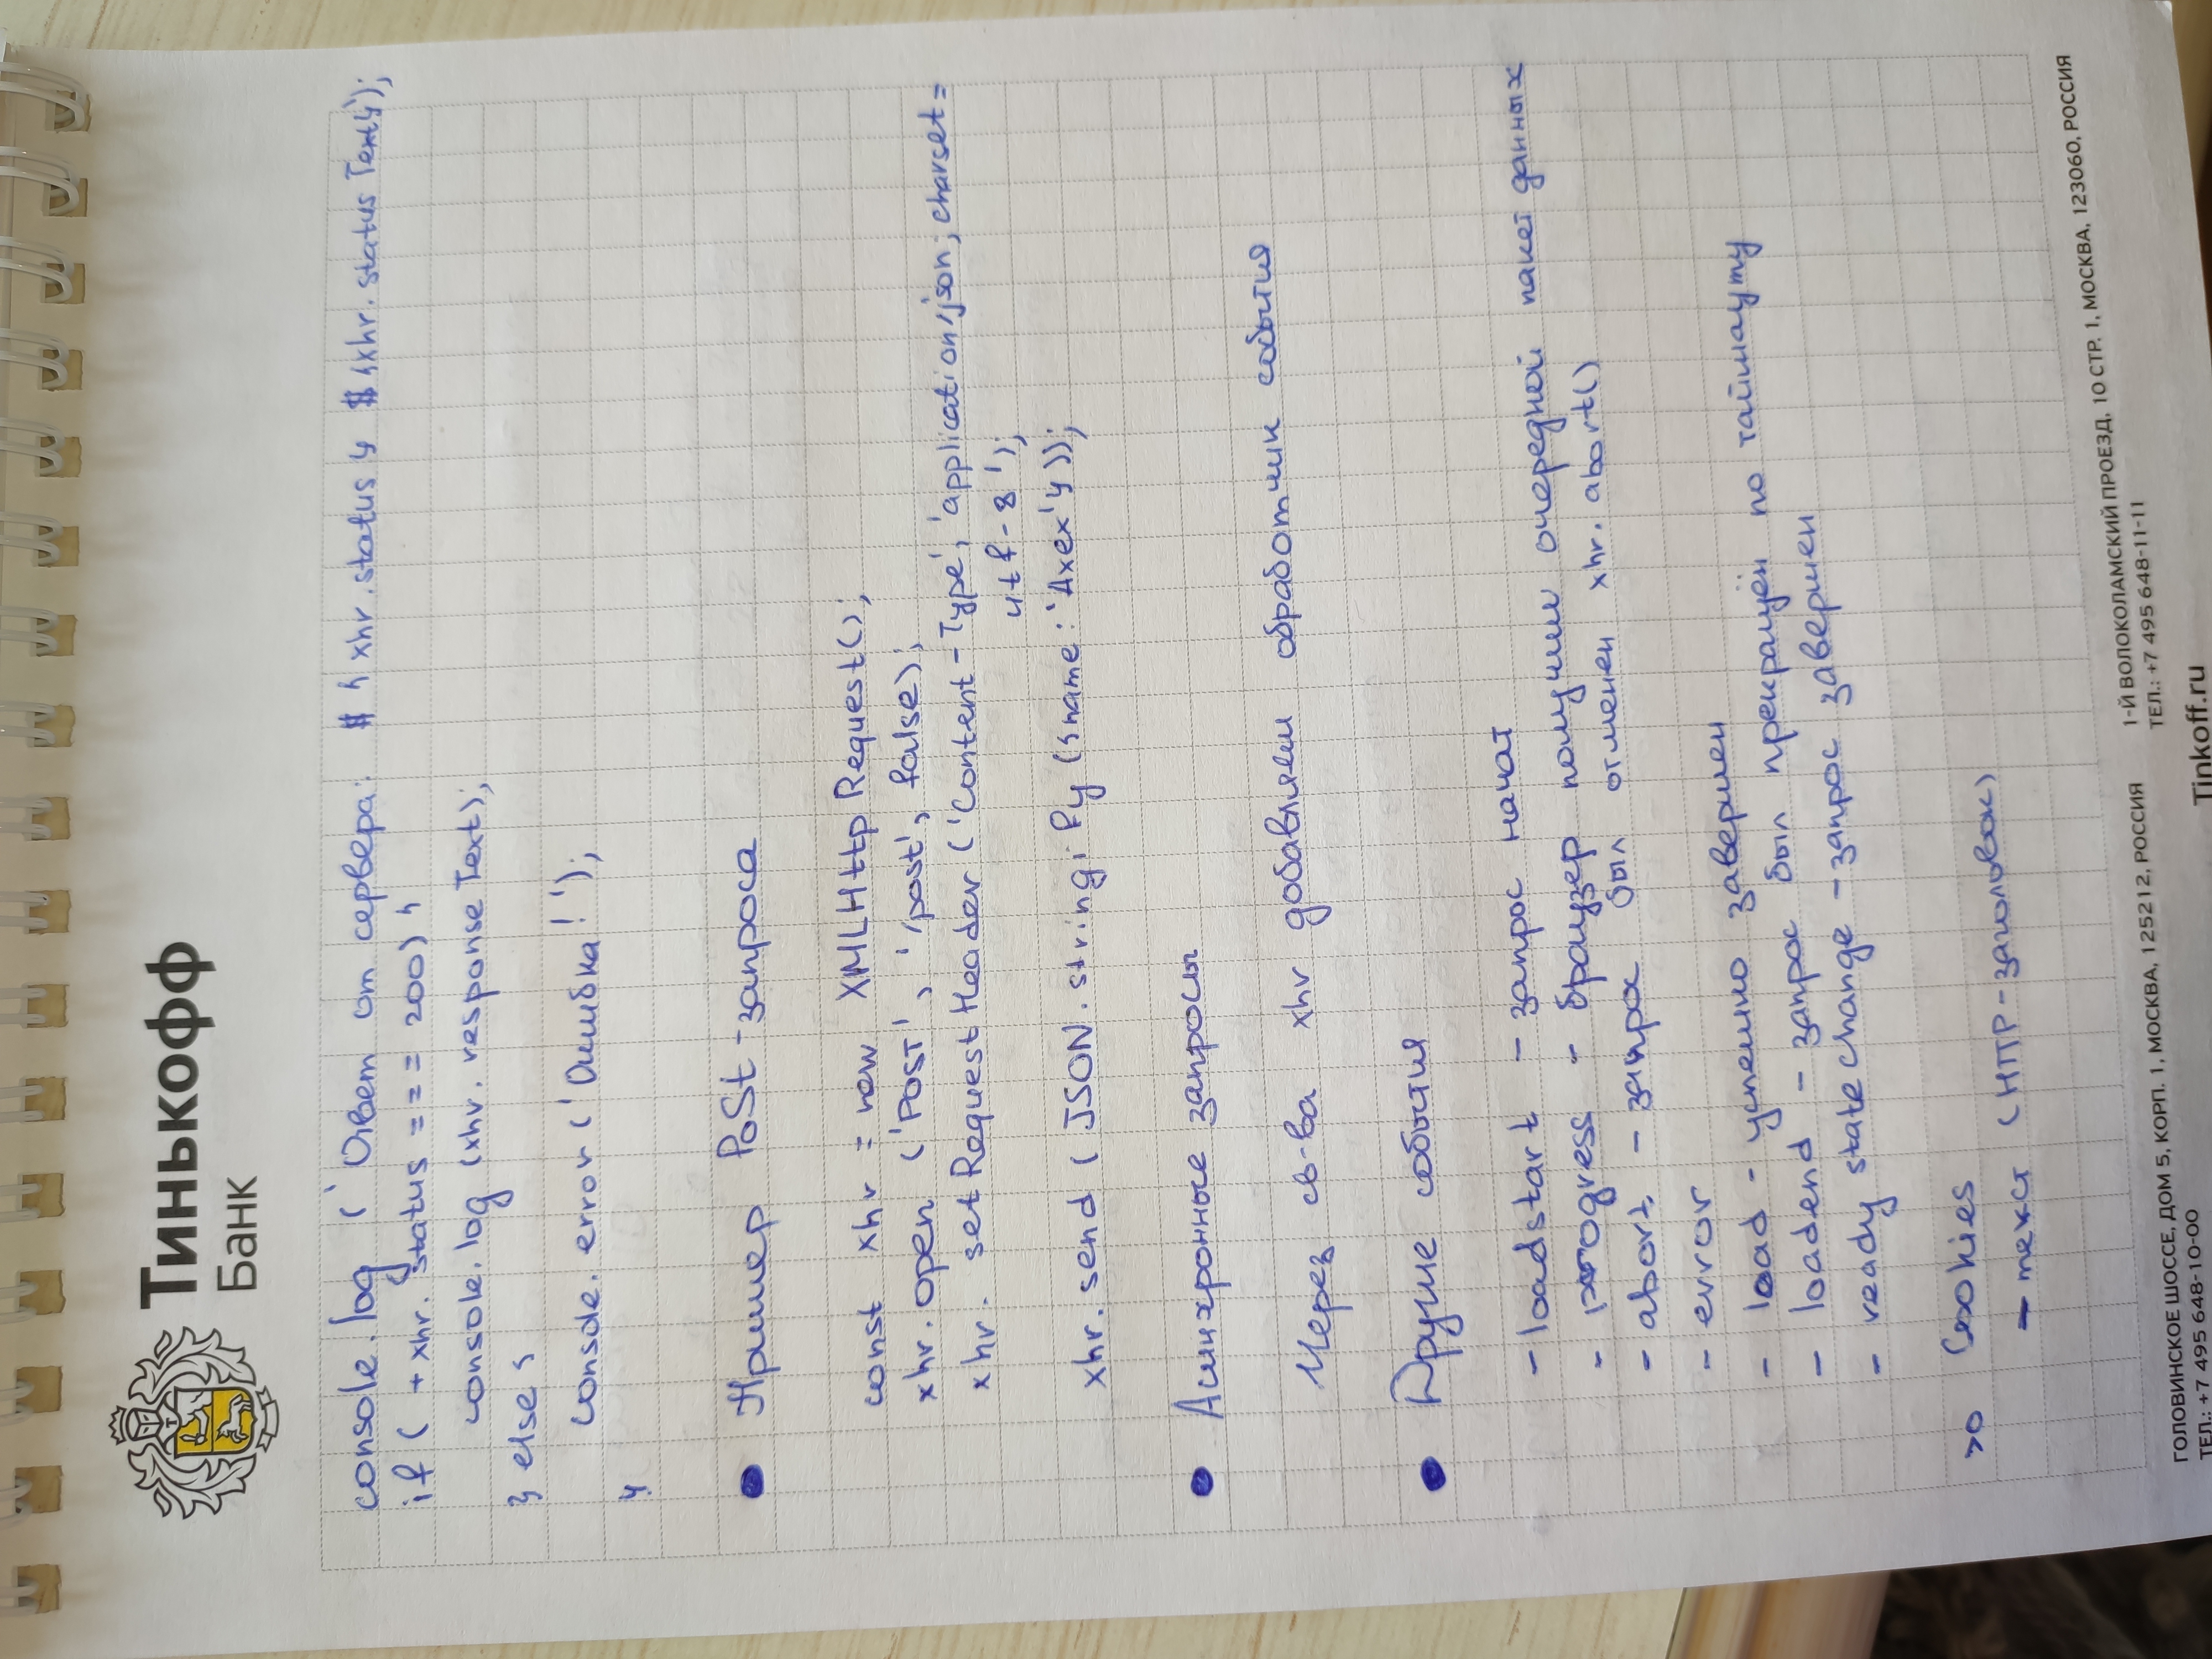 Тинькофф
Банк
console.log (`Ответ от сервера: ${xhr.status} ${xhr.statusText}`);
if ( +xhr.status === 200) {
console.log (xhr.responseText);
} else {
console.error ('Ошибка!');
}
• Пример PoSt-запроса
const xhr = new XMLHttpRequest();
xhr.open ('POST', '/post', false);
xhr.setRequestHeader ('Content-Type', 'application/json; charset=
utf-8');
xhr.send (JSON.stringify ({name: 'Axex'}));
• Асинхронные запросы
Через св-ва xhr добавляем обработчик события
• Другие события
- loadstart - запрос начат
- progress - браузер получил очередной пакет данных
- abort - запрос был отменен xhr.abort()
- error
- load - успешно завершен
- loadend - запрос был прекращён по таймауту
- ready statechange - запрос завершен
>o Cookies
- текст (HTTP-заголовок)
ГОЛОВИНСКОЕ ШОССЕ, ДОМ 5, КОРП. 1, МОСКВА, 125212, РОССИЯ
ТЕЛ.: +7 495 648-10-00
1-Й ВОЛОКОЛАМСКИЙ ПРОЕЗД, 10 СТР. 1, МОСКВА, 123060, РОССИЯ
ТЕЛ.: +7 495 648-11-11
Tinkoff.ru